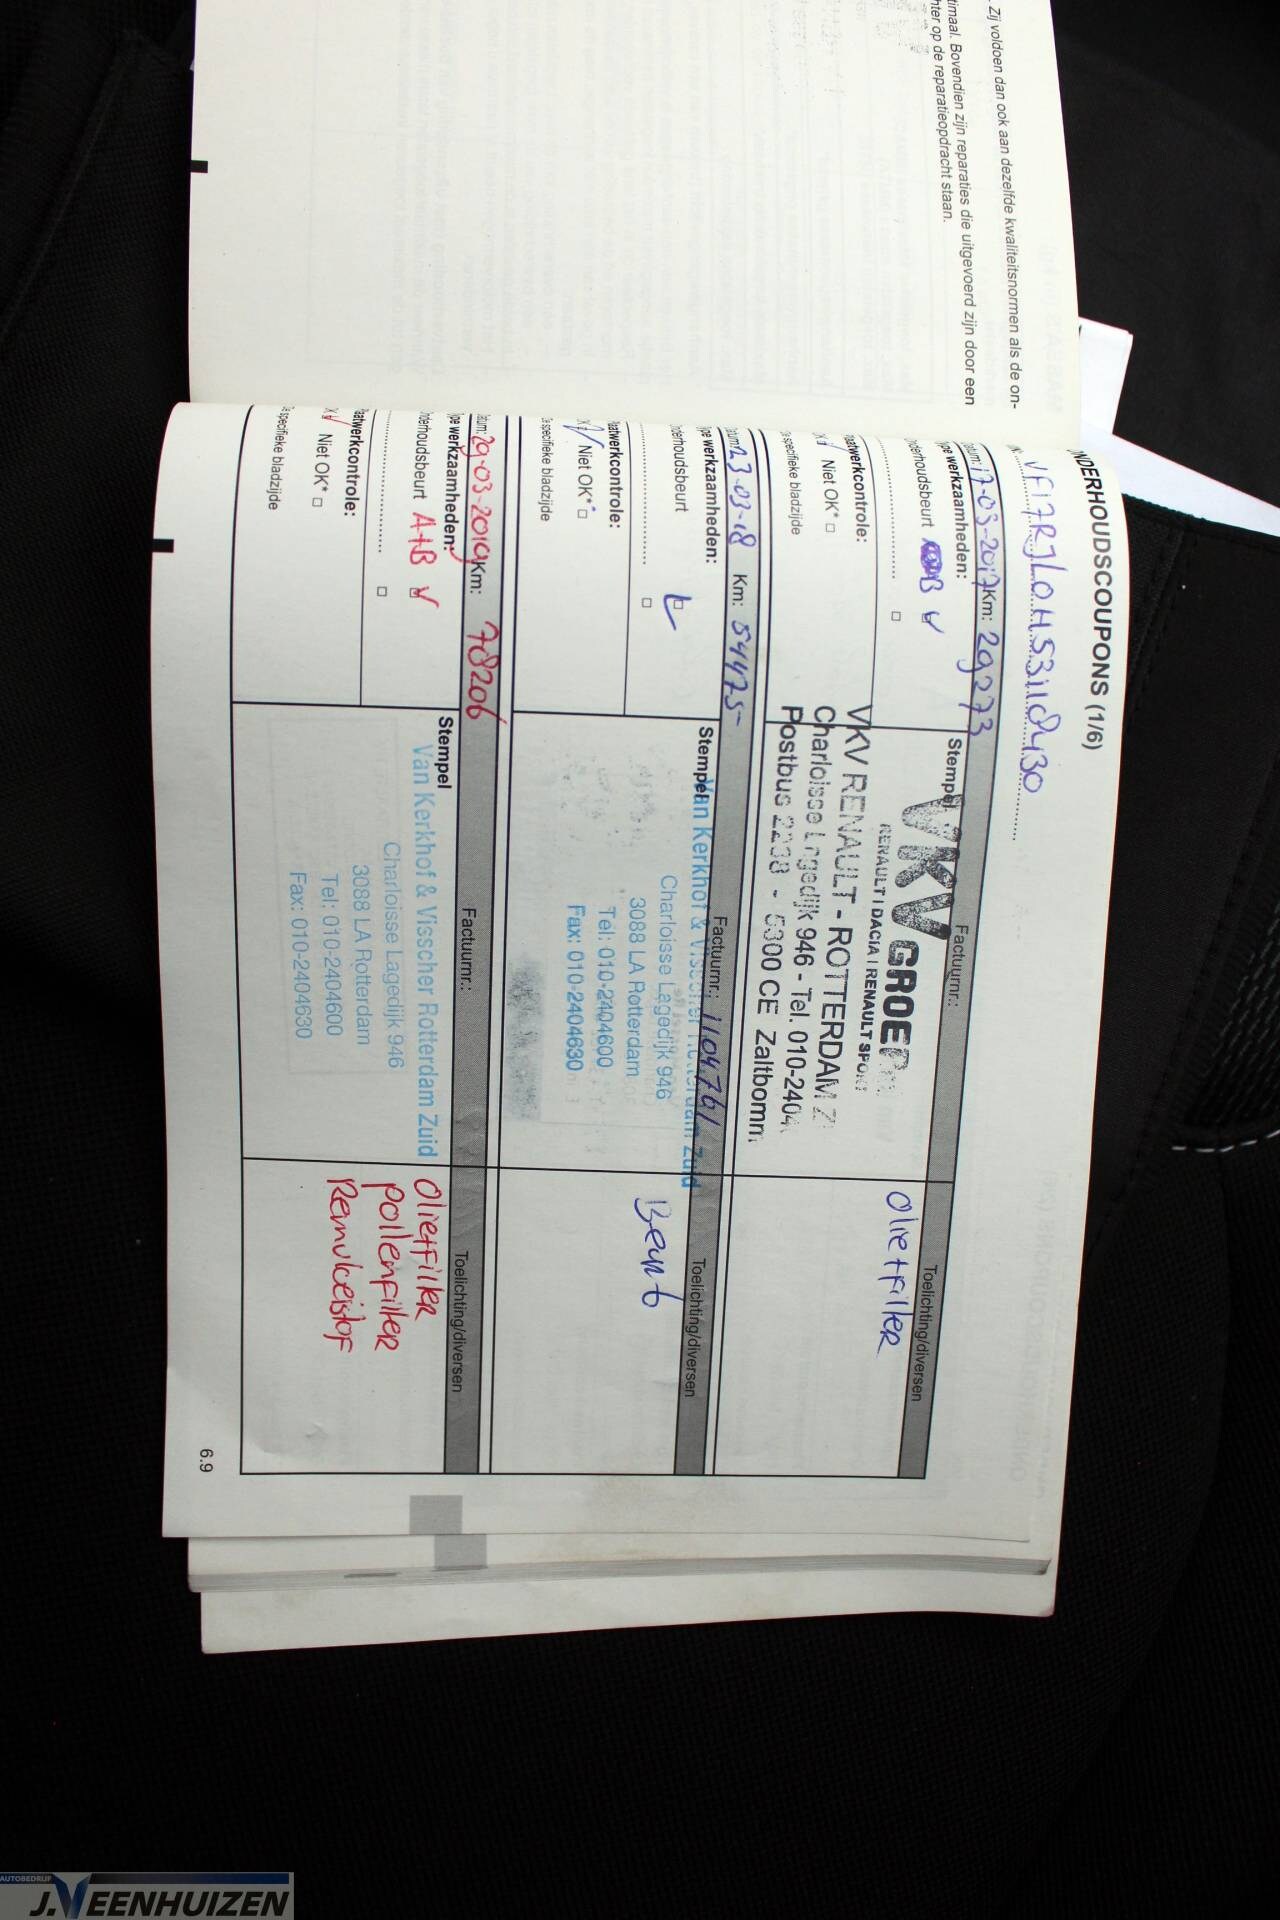 . Zij voldoen dan ook aan dezelfde kwaliteitsnormen als de on-
timaal. Bovendien zijn reparaties die uitgevoerd zijn door een
hter op de reparatieopdracht staan.
NDERHOUDSCOUPONS (1/6)
VF17RJL0H53110430
Datum: 17-03-2017 Km: 29273
Factuurnr.:
Toelichting/diversen
Type werkzaamheden:
Onderhoudsbeurt B
Plaatwerkcontrole:
OK Niet OK*
Zie specifieke bladzijde
Stempel
VKV GROEP
RENAULT | DACIA | RENAULT SPORT
VKV RENAULT - ROTTERDAM Z
Charloisse Lagedijk 946 - Tel. 010-2404
Postbus 2238 - 5300 CE Zaltbomm
olietfilter
Datum: 23-03-18 Km: 54475-
Factuurnr.: 1104761
Toelichting/diversen
Type werkzaamheden:
Onderhoudsbeurt
Plaatwerkcontrole:
OK Niet OK*
Zie specifieke bladzijde
Stempel
Van Kerkhof & Visscher Rotterdam Zuid
Charloisse Lagedijk 946
3088 LA Rotterdam
Tel: 010-2404600
Fax: 010-2404630
Beurt
Datum: 29-03-2019 Km: 78206
Factuurnr.:
Toelichting/diversen
Type werkzaamheden:
Onderhoudsbeurt A+B
Plaatwerkcontrole:
OK Niet OK*
Zie specifieke bladzijde
Stempel
Van Kerkhof & Visscher Rotterdam Zuid
Charloisse Lagedijk 946
3088 LA Rotterdam
Tel: 010-2404600
Fax: 010-2404630
olietFilter
pollenfilter
Remvloeistof
6.9
AUTOBEDRIJF
J.VEENHUIZEN